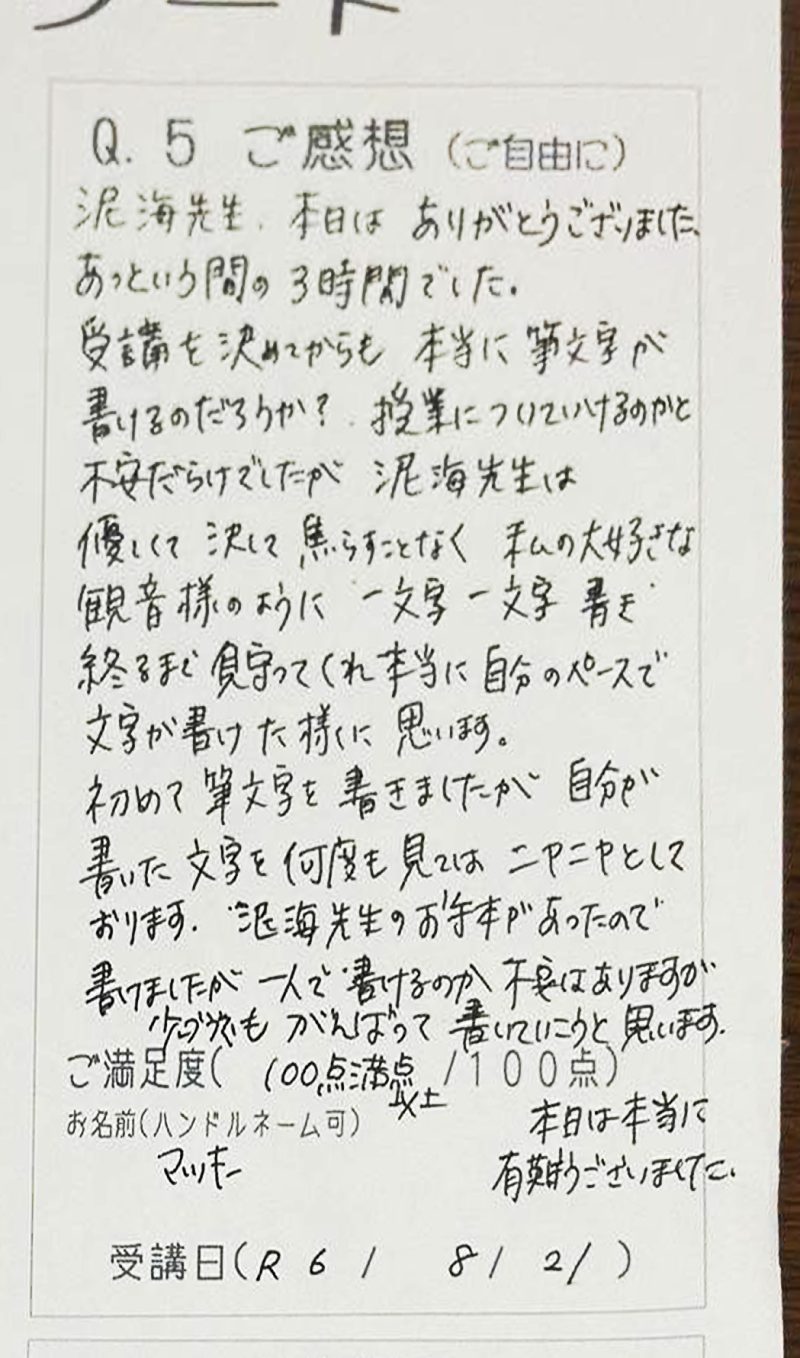 Q.5 ご感想(ご自由に)
泥海先生、本日は ありがとうございました、
あっという間の 3時間でした。
受講を決めてからも 本当に筆文字が
書けるのだろうか? 授業についていけるのかと
不安だらけでしたが 泥海先生は
優しくて 決して 焦らすことなく 私の大好きな
観音様のように 一文字一文字 書き
終るまで 見守ってくれ本当に自分のペースで
文字が書けた様に 思います。
初めて筆文字を書きましたが 自分が
書いた文字を何度も見ては ニヤニヤとして
おります。泥海先生のお手本があったので
書けましたが 一人で書けるのか不安はありますが
少しづつでも がんばって 書いていこうと思います。
ご満足度( 100点満点以上 /100点)
お名前(ハンドルネーム可)
マッキー
本日は本当に
有難うございました。
受講日(R 6 / 8 / 2 / )